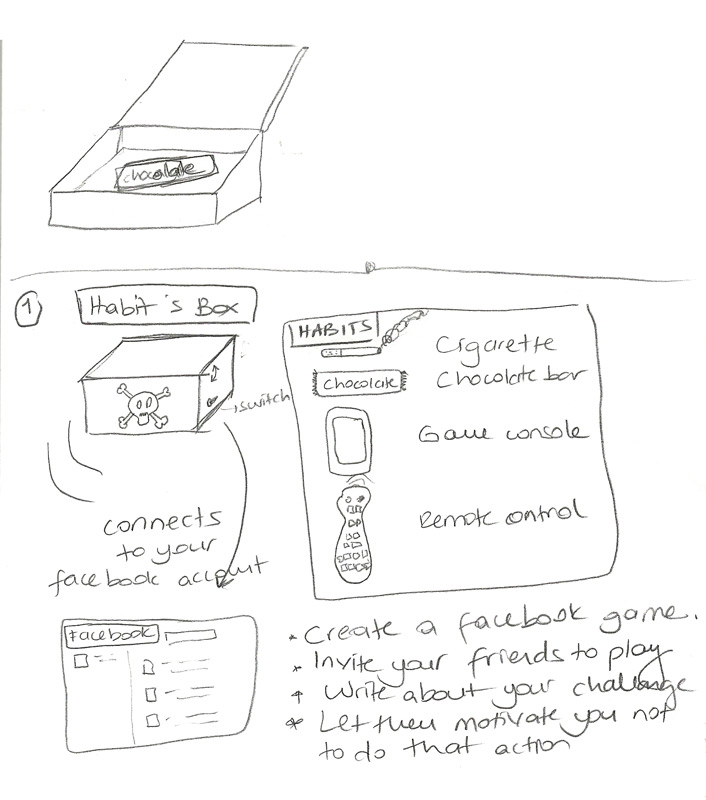 chocolate
1
Habit's Box
switch
connects
to your
facebook account
HABITS
Cigarette
chocolate
Chocolate bar
Game console
Remote control
Facebook
* Create a facebook game.
* Invite your friends to play
* Write about your challange
* Let them motivate you not
to do that action